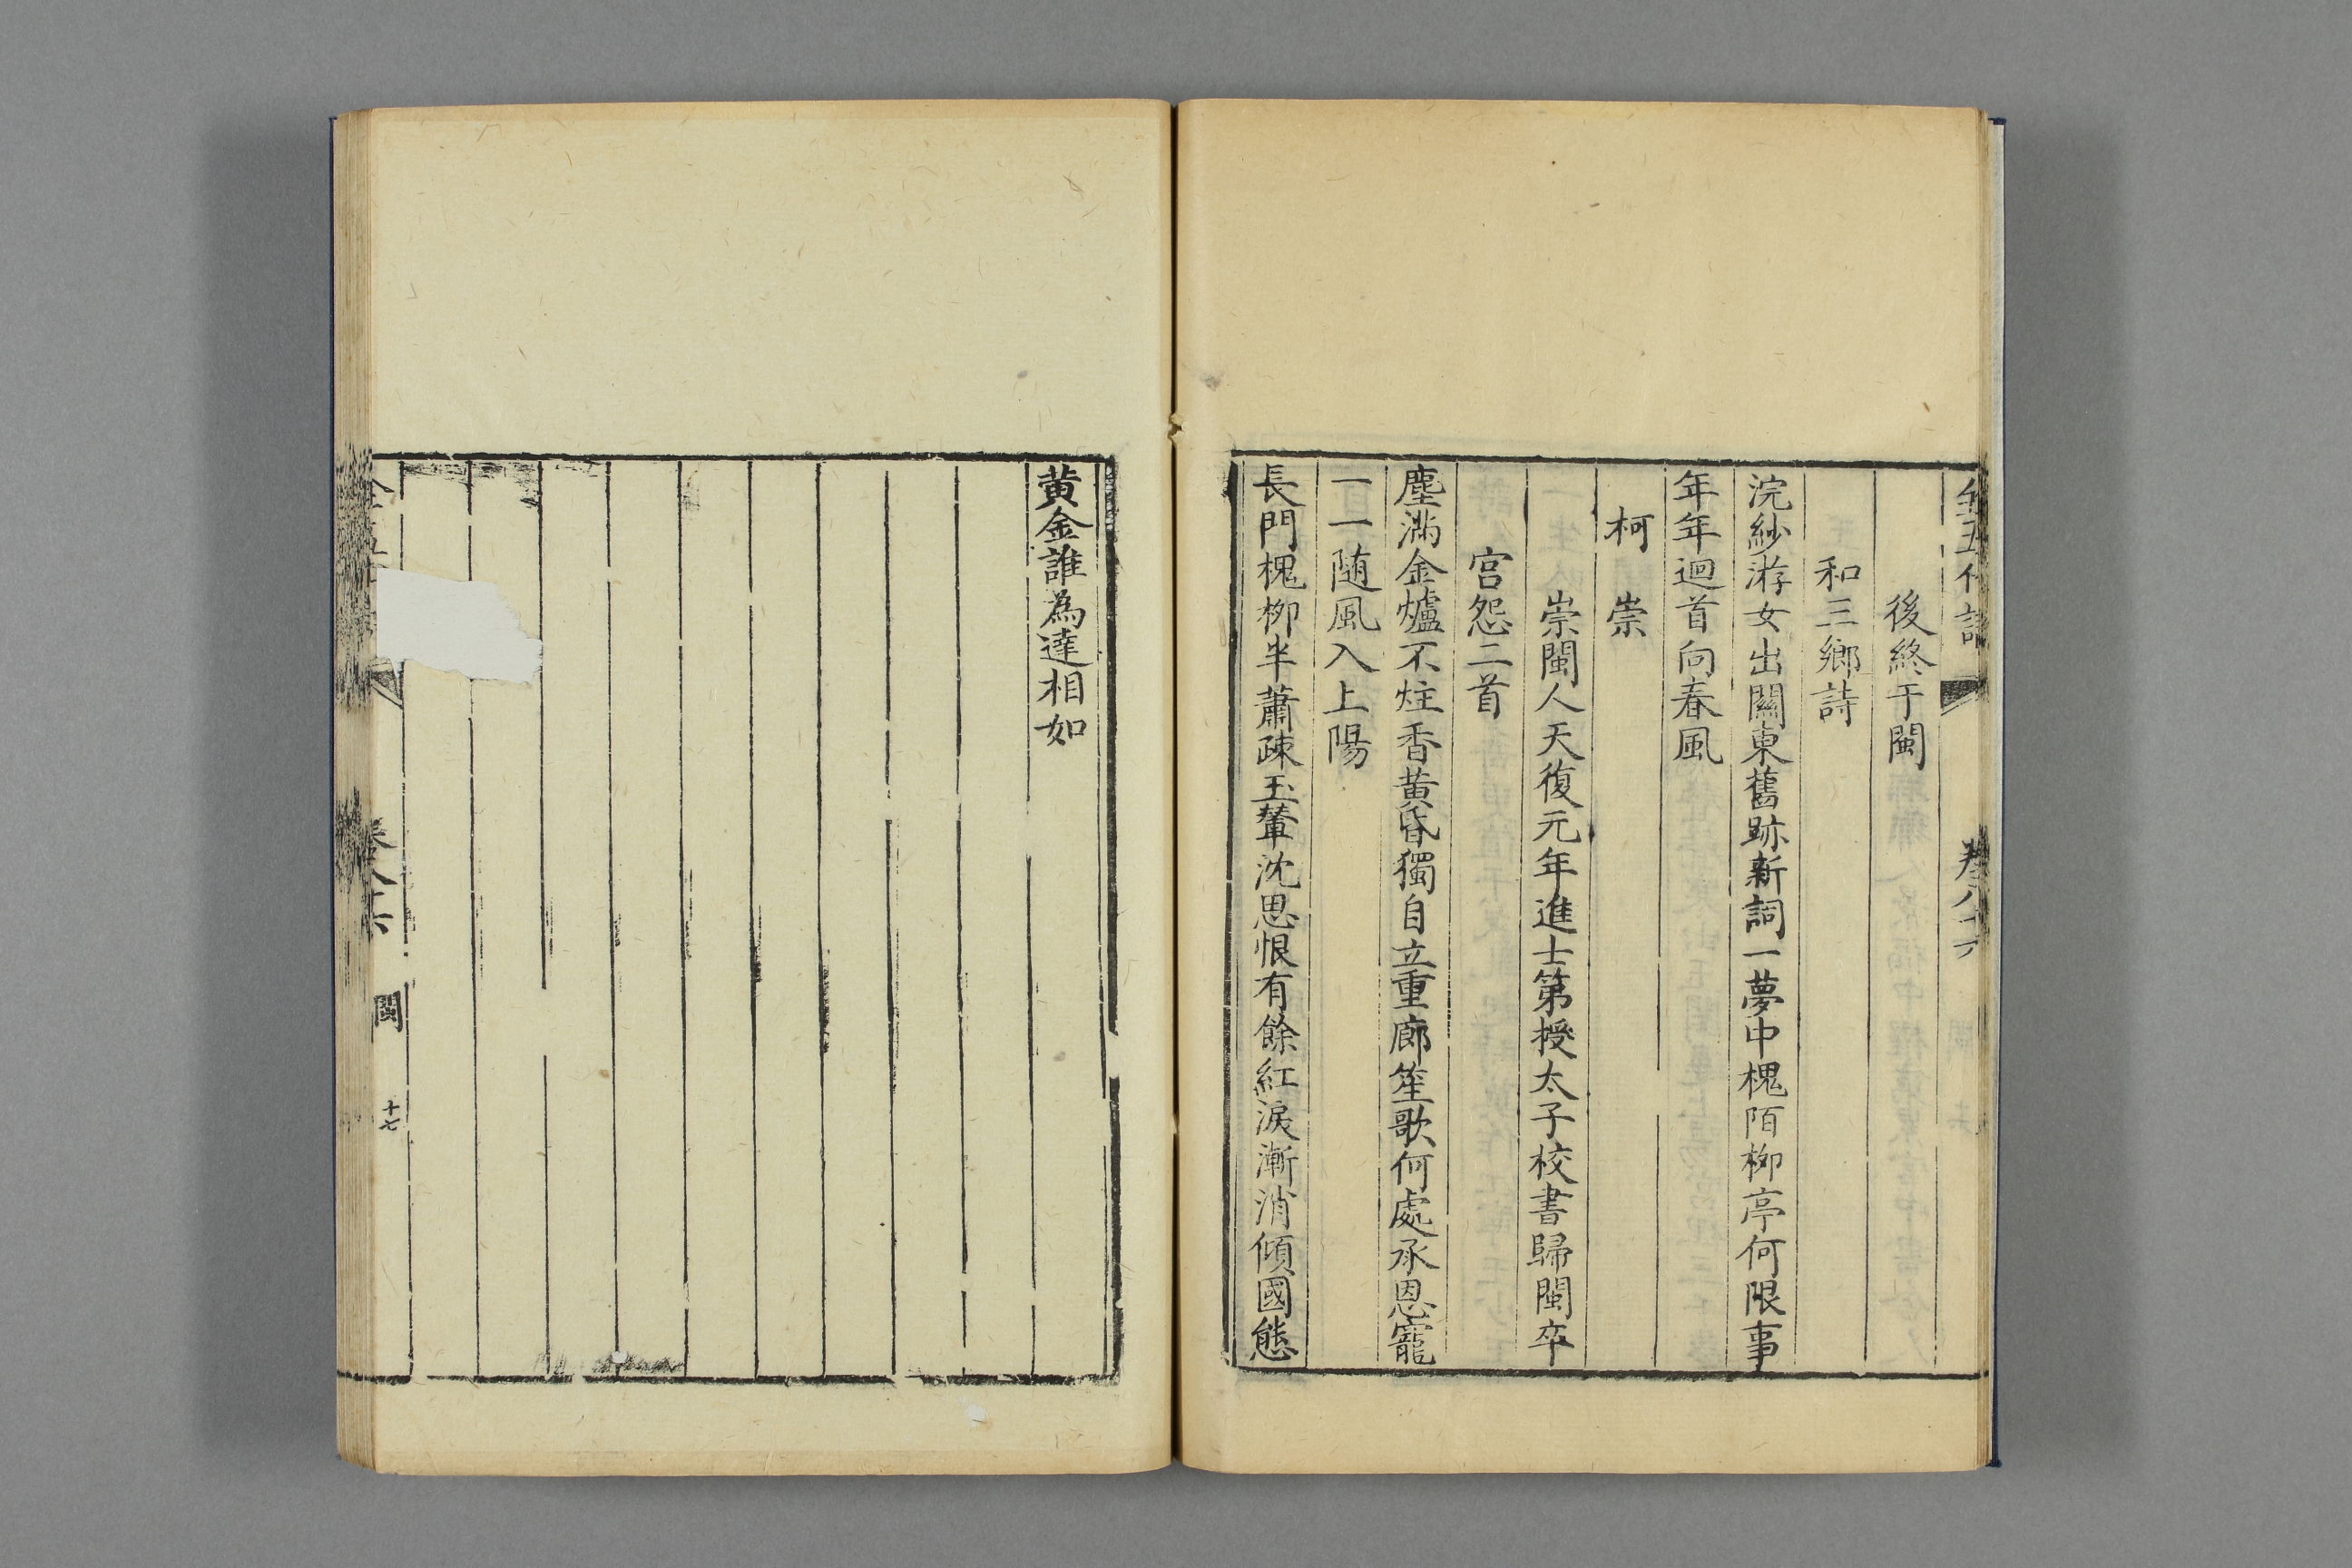 全五代詩 卷八十六
後終于閩
和三鄉詩
浣紗游女出關東舊跡新詞一夢中槐陌栁亭何限事
年年迴首向春風
柯崇
崇閩人天復元年進士第授太子校書歸閩卒
宫怨二首
塵滿金爐不炷香黄昏獨自立重廊笙歌何處承恩寵
一一随風入上陽
長門槐栁半蕭疎玉輦沈思恨有餘紅淚漸消傾國態
黄金誰為達相如
卷八十六 閩 十七